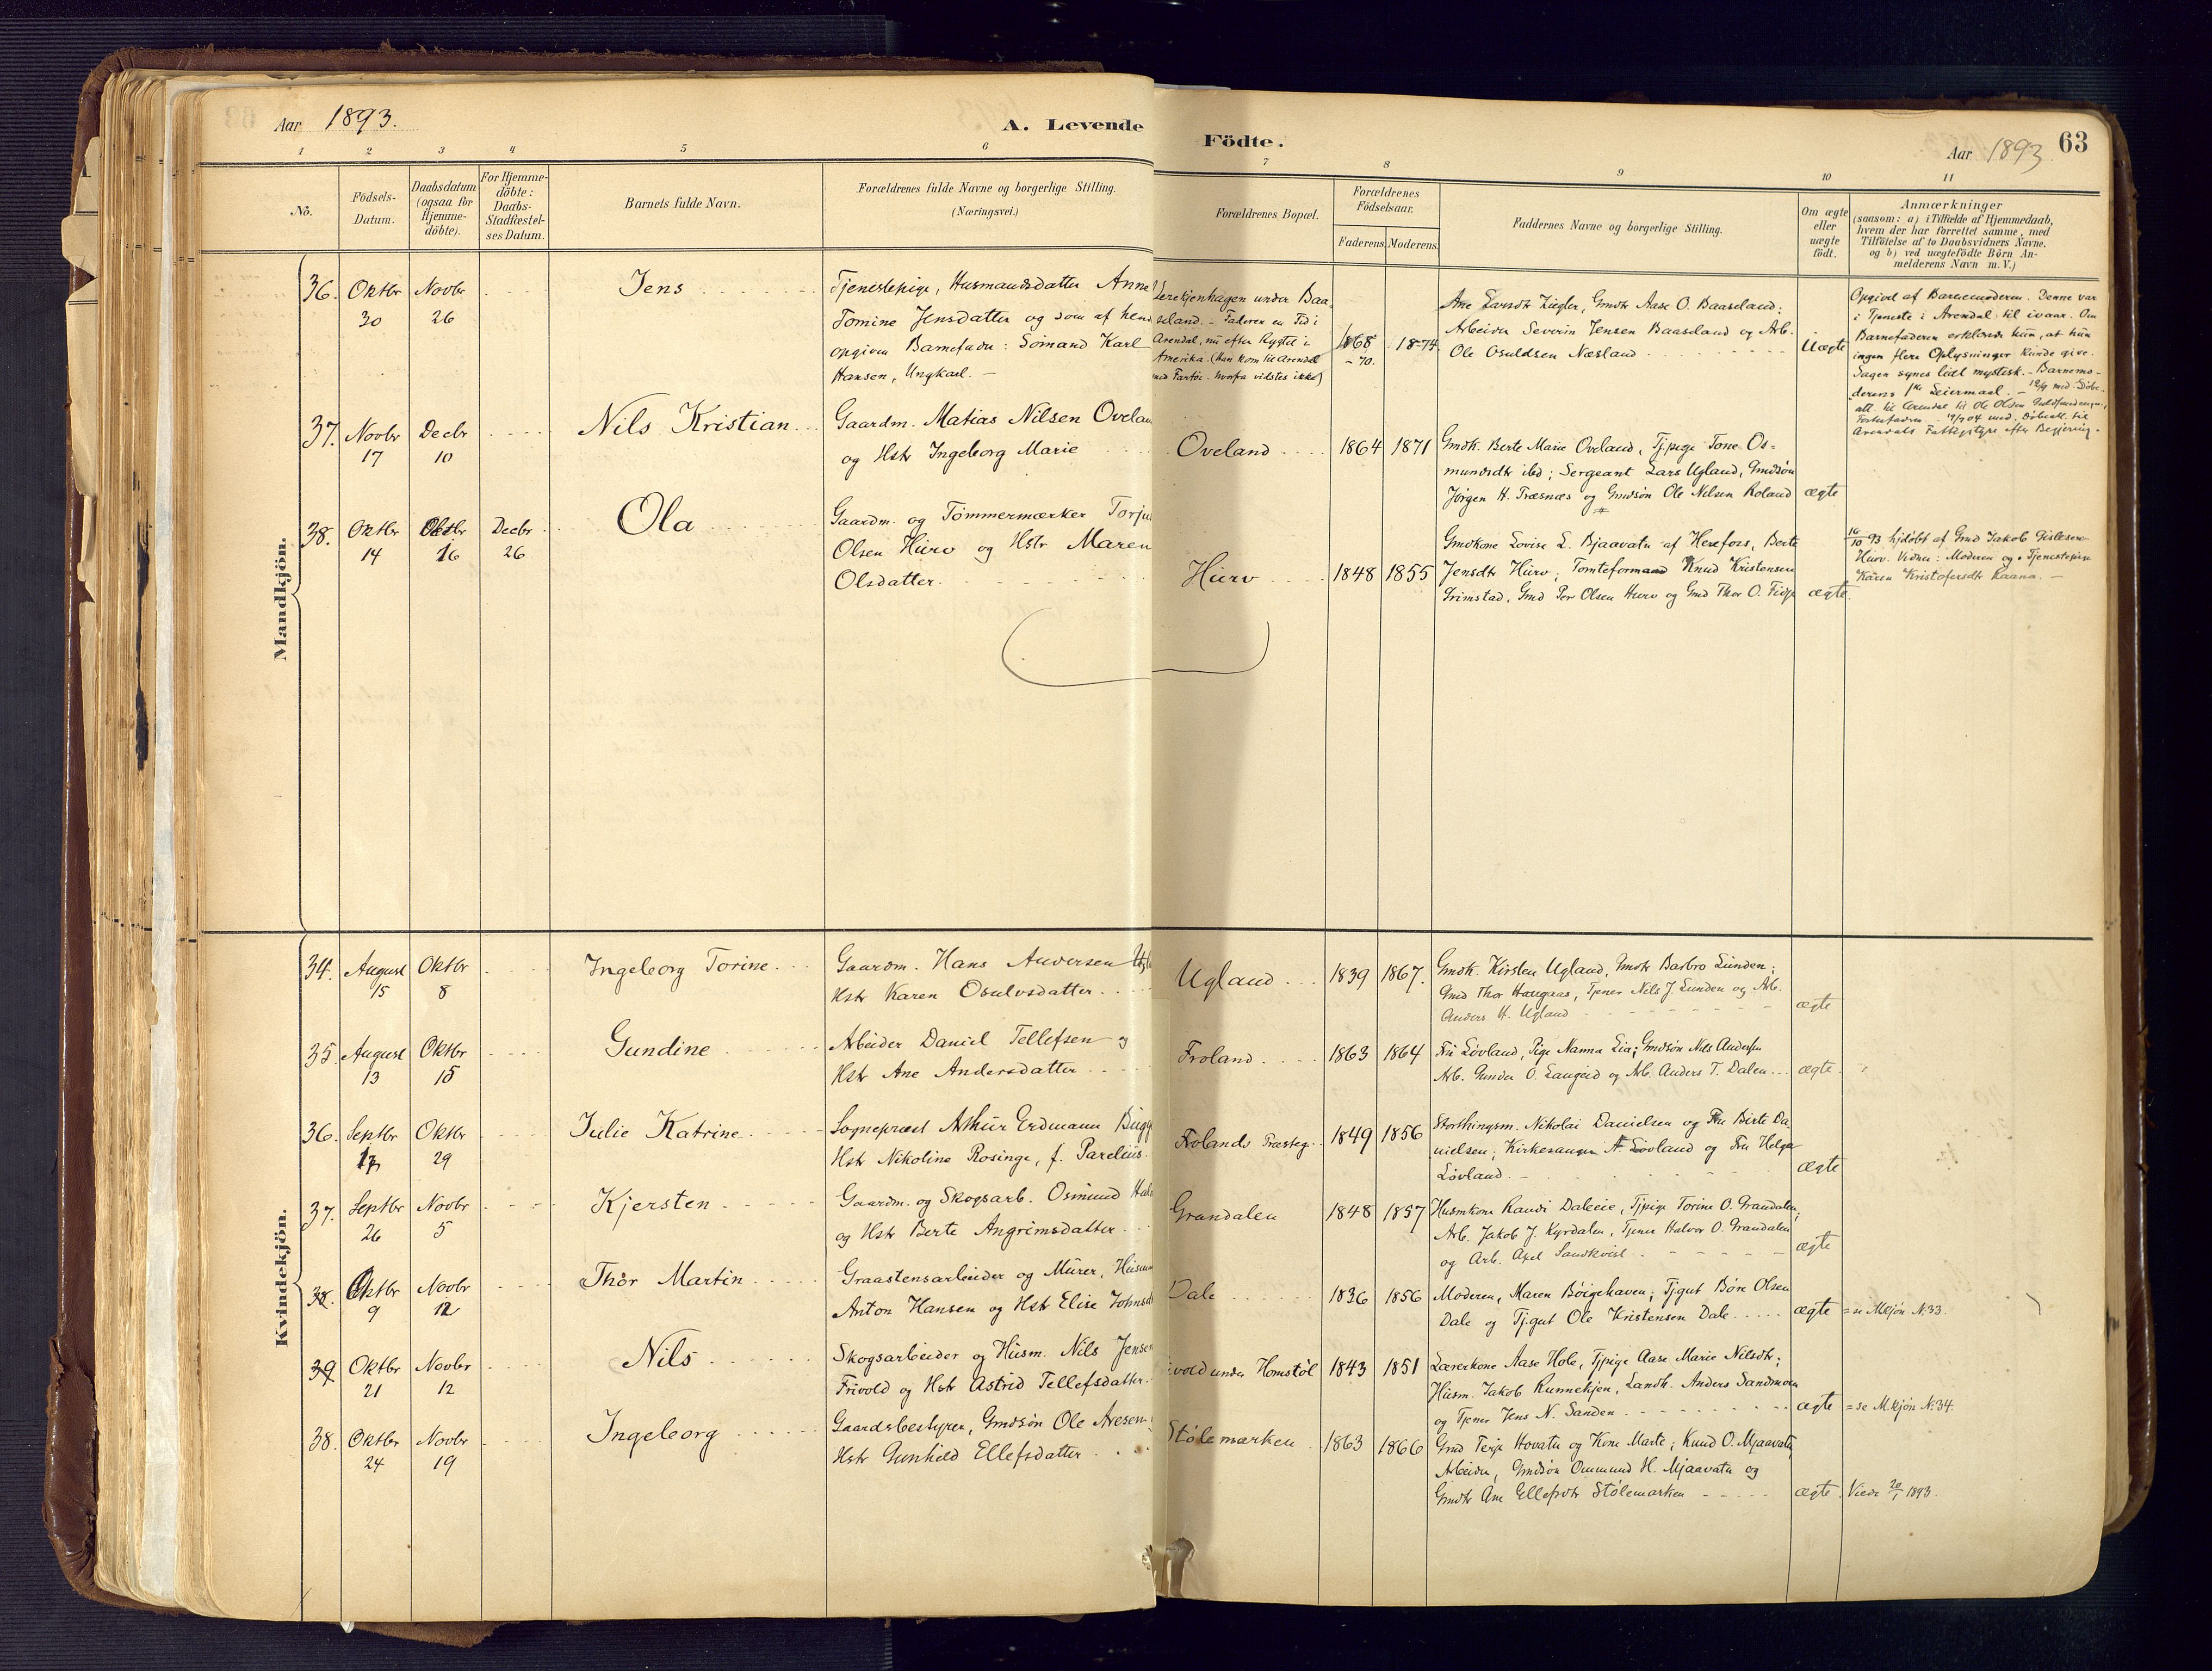 Aar 1893.
A. Levende
Födte.
Aar 1893
63
1 2 3 4 5 6 7 8 9 10 11
No.
Födsels-Datum.
Daabsdatum (ogsaa for Hjemme-döbte).
For Hjemme-döbte: Daabs-Stadfæstel-ses Datum.
Barnets fulde Navn.
Forældrenes fulde Navne og borgerlige Stilling.
(Næringsvei.)
Forældrenes Bopæl.
Forældrenes Födselsaar.
Faderens. Moderens.
Faddernes Navne og borgerlige Stilling.
Om ægte eller uægte födt.
Anmærkninger
(saasom: a) i Tilfælde af Hjemmedaab,
hvem der har forrettet samme, med
Tilföielse af to Daabsvidners Navne.
og b) ved uægtefödte Börn An-
melderens Navn m. V.)
Mandkjön.
36. Oktbr 30 Novbr 26 Jens
Tjenestepige, Husmandsdatter Anne
Tomine Jensdatter og som af hende
opgiven Barnefader: Sømand Karl
Hansen, Ungkarl. —
Lerekjenhagen under Baa-
seland. – Faderen en Tid i
Arendal, nu efter Rygtet i
Amerika. (han kom til Arendal
med Fartøi - hvorfra vidstes ikke)
1868 -70. 1874
Ane Larsdtr Ziegler, Gmdtr Aase O. Baaseland;
Arbeider Severin Jensen Baaseland og Arb.
Ole Osuldsen Næsland
Uægte
Opgivet af Barnemoderen. Denne var
i Tjeneste i Arendal til ivaar. Om
Barnefaderen erklærede hun, at hun
ingen flere Oplysninger kunde give.
Sagen synes lidt mystisk. - Barnemo-
derens 1ste Leiermaal. –
37. Novbr 17 Decbr 10 Nils Kristian
Gaardm. Matias Nilsen Ovelan
og Hstr Ingeborg Marie
Oveland 1864 1871
Gmdk. Berte Marie Oveland, Tjpige Tone Os-
mundsdtr ibd; Sergeant Lars Ugland, Gmdsøn
Jørgen H. Træsnæs og Gmdsøn Ole Nilsen Roland
ægte
38. Oktbr 14 Oktbr 16 Decbr 26 Ola
Gaardm. og Tømmermærker Torju
Olsen Hurv og Hstr Maren
Olsdatter.
Hurv 1848 1855
Gmdkone Lovise L. Bjaavatn af Herefoss, Berte
Jensdtr Hurv; Tomteformand Knud Kristensen
Grimstad, Gmd Per Olsen Hurv og Gmd Thor O.
ægte
16/10 93 hjdøbt af Gmd Jakob Gislesen
Hurv. Vidner: Moderen og Tjenestepige
Karen Kristofersdtr Raana. —
Kvindekjön.
34. August 15 Oktbr 8 Ingeborg Torine
Gaardm. Hans Andersen Ugl
Hstr Karen Osulvsdatter
Ugland 1839 1867.
Gmdk. Kirsten Ugland, Gmdtr Barbro Lunden;
Gmd Thor Haugaas, Tjener Nils J. Lunden og Arb.
Anders H. Ugland
ægte
35. August 13 Oktbr 15 Gundine
Arbeider Daniel Tellefsen og
Hstr Ane Andersdatter
Froland 1863 1864
Fru Løvland, Pige Nanna Lia; Gmdsøn Nils Andersen
Arb. Gunder O. Laugeid og Arb. Anders T. Dalen
ægte
36. Septbr 17 Oktbr 29 Julie Katrine
Sogneprest Arthur Erdmann Bugg
Hstr Nikoline Rosinge, f. Parelius
Frolands Præsteg. 1849 1856
Storthingsm. Nikolai Danielsen og Fru Birte Da-
nielsen; Kirkesanger A. Løvland og Fru Helga
Løvland.
ægte
37. Septbr 26 Novbr 5 Kjersten
Gaardm. og Skogsarb. Osmund Hal
og Hstr Berte Angrimsdatter
Grandalen 1848 1857
Husmkone Randi Daleeie, Tjpige Torine O. Grandalen;
Arb. Jakob J. Kyrdalen, Tjener Halvor O. Grandalen
og Arb. Axel Sandkvist
ægte
38. Oktbr 9 Novbr 12 Thor Martin
Graastensarbeider og Murer, Husm
Anton Hansen og Hstr Elise Johnsd
Dale 1836 1856
Moderen, Maren Bøigehaven; Tj.gut Børe Olsen
Dale og Tj.gut Ole Kristensen Dale
ægte = se Mkjøn N.33.
39 Oktbr 21 Novbr 12 Nils
Skogsarbeider og Husm. Nils Jensen
Frivold og Hstr Astrid Tellefsdatter.
ivold under Homstøl 1843 1851
Lærerkone Aase Hole, Tjpige Aase Marie Nilsdtr;
Husm. Jakob Runnekjen, Landh. Anders Sandmoen
og Tjener Jens N. Sanden
ægte = se Mkjøn N.34.
38. Oktbr 24 Novbr 19 Ingeborg
Gaardsbestyrer, Gmdsøn Ole Aresen
Hstr Gunhild Ellefsdatter
Stølemarken 1863 1866
Gmd Terje Hovatn og Kone Marte; Knud O. Mjaavatn,
Arbeider, Gmdsøn Ommund H. Mjaavatn og
Gmdtr Ane Ellefsdtr Stølemarken
ægte. Viede 20/1 1893.